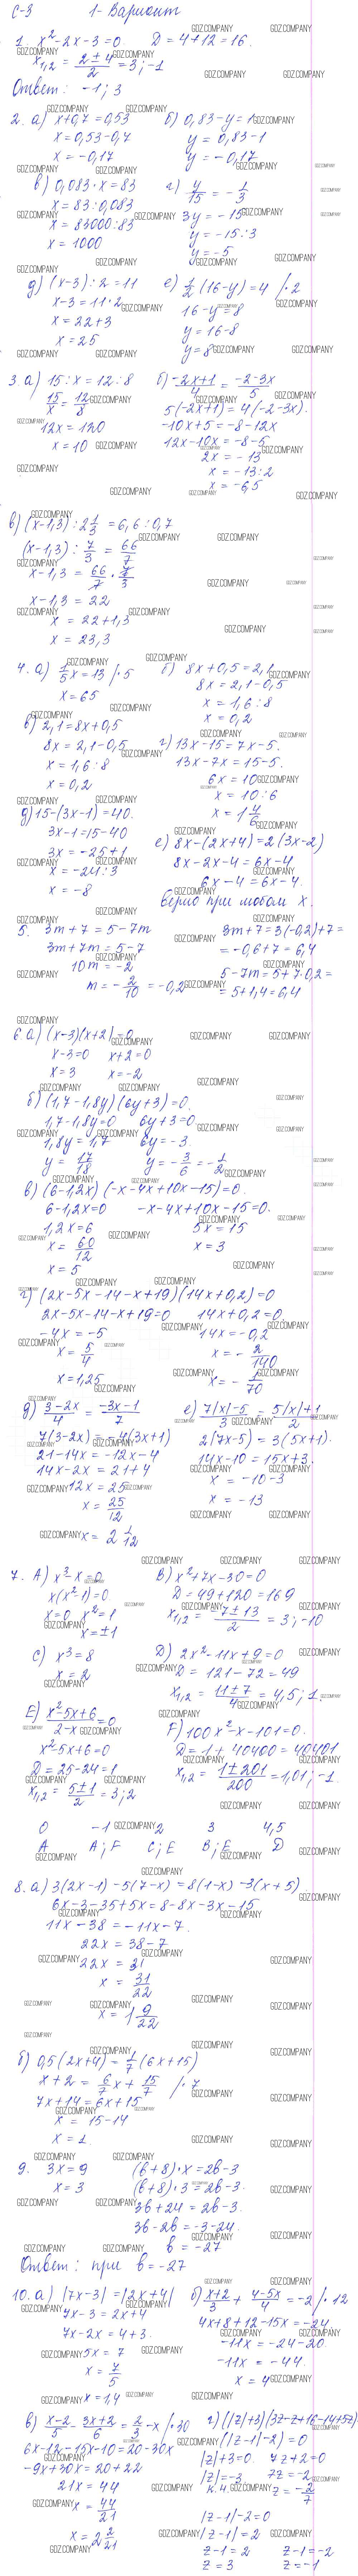 С-3 1-Вариант
1. x²-2x-3=0 D=4+12=16.
x₁,₂ = (2±4)/2 = 3; -1
Ответ: -1; 3
2. а) x+0,7=0,53 б) 0,83-y=1
x=0,53-0,7 y=0,83-1
x=-0,17 y=-0,17
в) 0,083·x=83 г) y/15 = -1/3
x=83:0,083 3y=-15
x=83000:83 y=-15:3
x=1000 y=-5
д) (x-3):2=11 е) 1/2(16-y)=4 /·2
x-3=11·2 16-y=8
x=22+3 y=16-8
x=25 y=8
3. а) 15:x=12:8 б) (-2x+1)/4 = (-2-3x)/5
15/x=12/8 5(-2x+1)=4(-2-3x).
12x=120 -10x+5=-8-12x
x=10 12x-10x=-8-5
2x=-13
x=-13:2
x=-6,5
в) (x-1,3):2 1/3=6,6:0,7
(x-1,3):7/3=66/7
x-1,3=66/7·7/3
x-1,3=22
x=22+1,3
x=23,3
4. а) 1/5x=13 /·5 б) 8x+0,5=2,1
x=65 8x=2,1-0,5
x=1,6:8
x=0,2
в) 2,1=8x+0,5
8x=2,1-0,5 г) 13x-15=7x-5.
x=1,6:8 13x-7x=15-5.
x=0,2 6x=10
x=10:6
x=1 4/6
д) 15-(3x-1)=40.
3x-1=15-40 е) 8x-(2x+4)=2(3x-2)
3x=-25+1 8x-2x-4=6x-4
x=-24:3 6x-4=6x-4.
x=-8 Верно при любом x.
5. 3m+7=5-7m 3m+7=3(-0,2)+7=
3m+7m=5-7 =-0,6+7=6,4
10m=-2 5-7m=5+7·0,2=
m=-2/10=-0,2 =5+1,4=6,4
6. а) (x-3)(x+2)=0
x-3=0 x+2=0
x=3 x=-2
б) (1,7-1,8y)(6y+3)=0.
1,7-1,8y=0 6y+3=0
1,8y=1,7 6y=-3
y=17/18 y=-3/6=-1/2
в) (6-1,2x)(-x-4x+10x-15)=0.
6-1,2x=0 -x-4x+10x-15=0.
1,2x=6 5x=15
x=60/12 x=3
x=5
г) (2x-5x-14-x+19)(14x+0,2)=0
2x-5x-14-x+19=0 14x+0,2=0
-4x=-5 14x=-0,2
x=5/4 x=-2/140
x=1,25 x=-1/70
д) (3-2x)/4=(-3x-1)/7 е) (7|x|-5)/3=(5|x|+1)/2
7(3-2x)=-4(3x+1) 2(7x-5)=3(5x+1).
21-14x=-12x-4 14x-10=15x+3.
14x-2x=21+4 x=-10-3
12x=25 x=-13
x=25/12
x=2 1/12
7. А) x³-x=0 B) x²+7x-30=0
x(x²-1)=0 D=49+120=169
x=0 x²=1 x₁,₂=(-7±13)/2=3; -10
x=±1
C) x³=8 D) 2x²-11x+9=0
x=2 D=121-72=49
x₁,₂=(11±7)/4=4,5; 1.
E) (x²-5x+6)/(2-x)=0 F) 100x²-x-101=0.
x²-5x+6=0 D=1+40400=40401
D=25-24=1 x₁,₂=(1±201)/200=1,01; -1.
x₁,₂=(5±1)/2=3; 2
0 -1 2 3 4,5
A A; F C; E B; E D
8. а) 3(2x-1)-5(7-x)=8(1-x)-3(x+5).
6x-3-35+5x=8-8x-3x-15
11x-38=-11x-7.
22x=38-7
22x=31
x=31/22
x=1 9/22
б) 0,5(2x+4)=1/7(6x+15)
x+2=6/7x+15/7 /·7
7x+14=6x+15
x=15-14
x=1.
9. 3x=9 (b+8)·x=2b-3
x=3 (b+8)·3=2b-3.
3b+24=2b-3.
3b-2b=-3-24.
b=-27
Ответ: при b=-27
10. а) |7x-3|=|2x+4| б) (x+2)/3+(4-5x)/4=-2 /·12
7x-3=2x+4 4x+8+12-15x=-24
7x-2x=4+3. -11x=-24-20.
5x=7 -11x=-44.
x=7/5 x=4
x=1,4
в) (x-2)/5-(3x+2)/6=2/3-x /·30 г) (|z|+3)(3z-z+16-14+5z)·
6x-12-15x-10=20-30x ·(|z-1|-2)=0
-9x+30x=20+22 |z|+3=0. 7z+2=0
21x=44 |z|=-3 7z=-2
x=44/21 к.к. z=-2/7
x=2 2/21 |z-1|-2=0
|z-1|=2
z-1=2 z-1=-2
z=3 z=-1